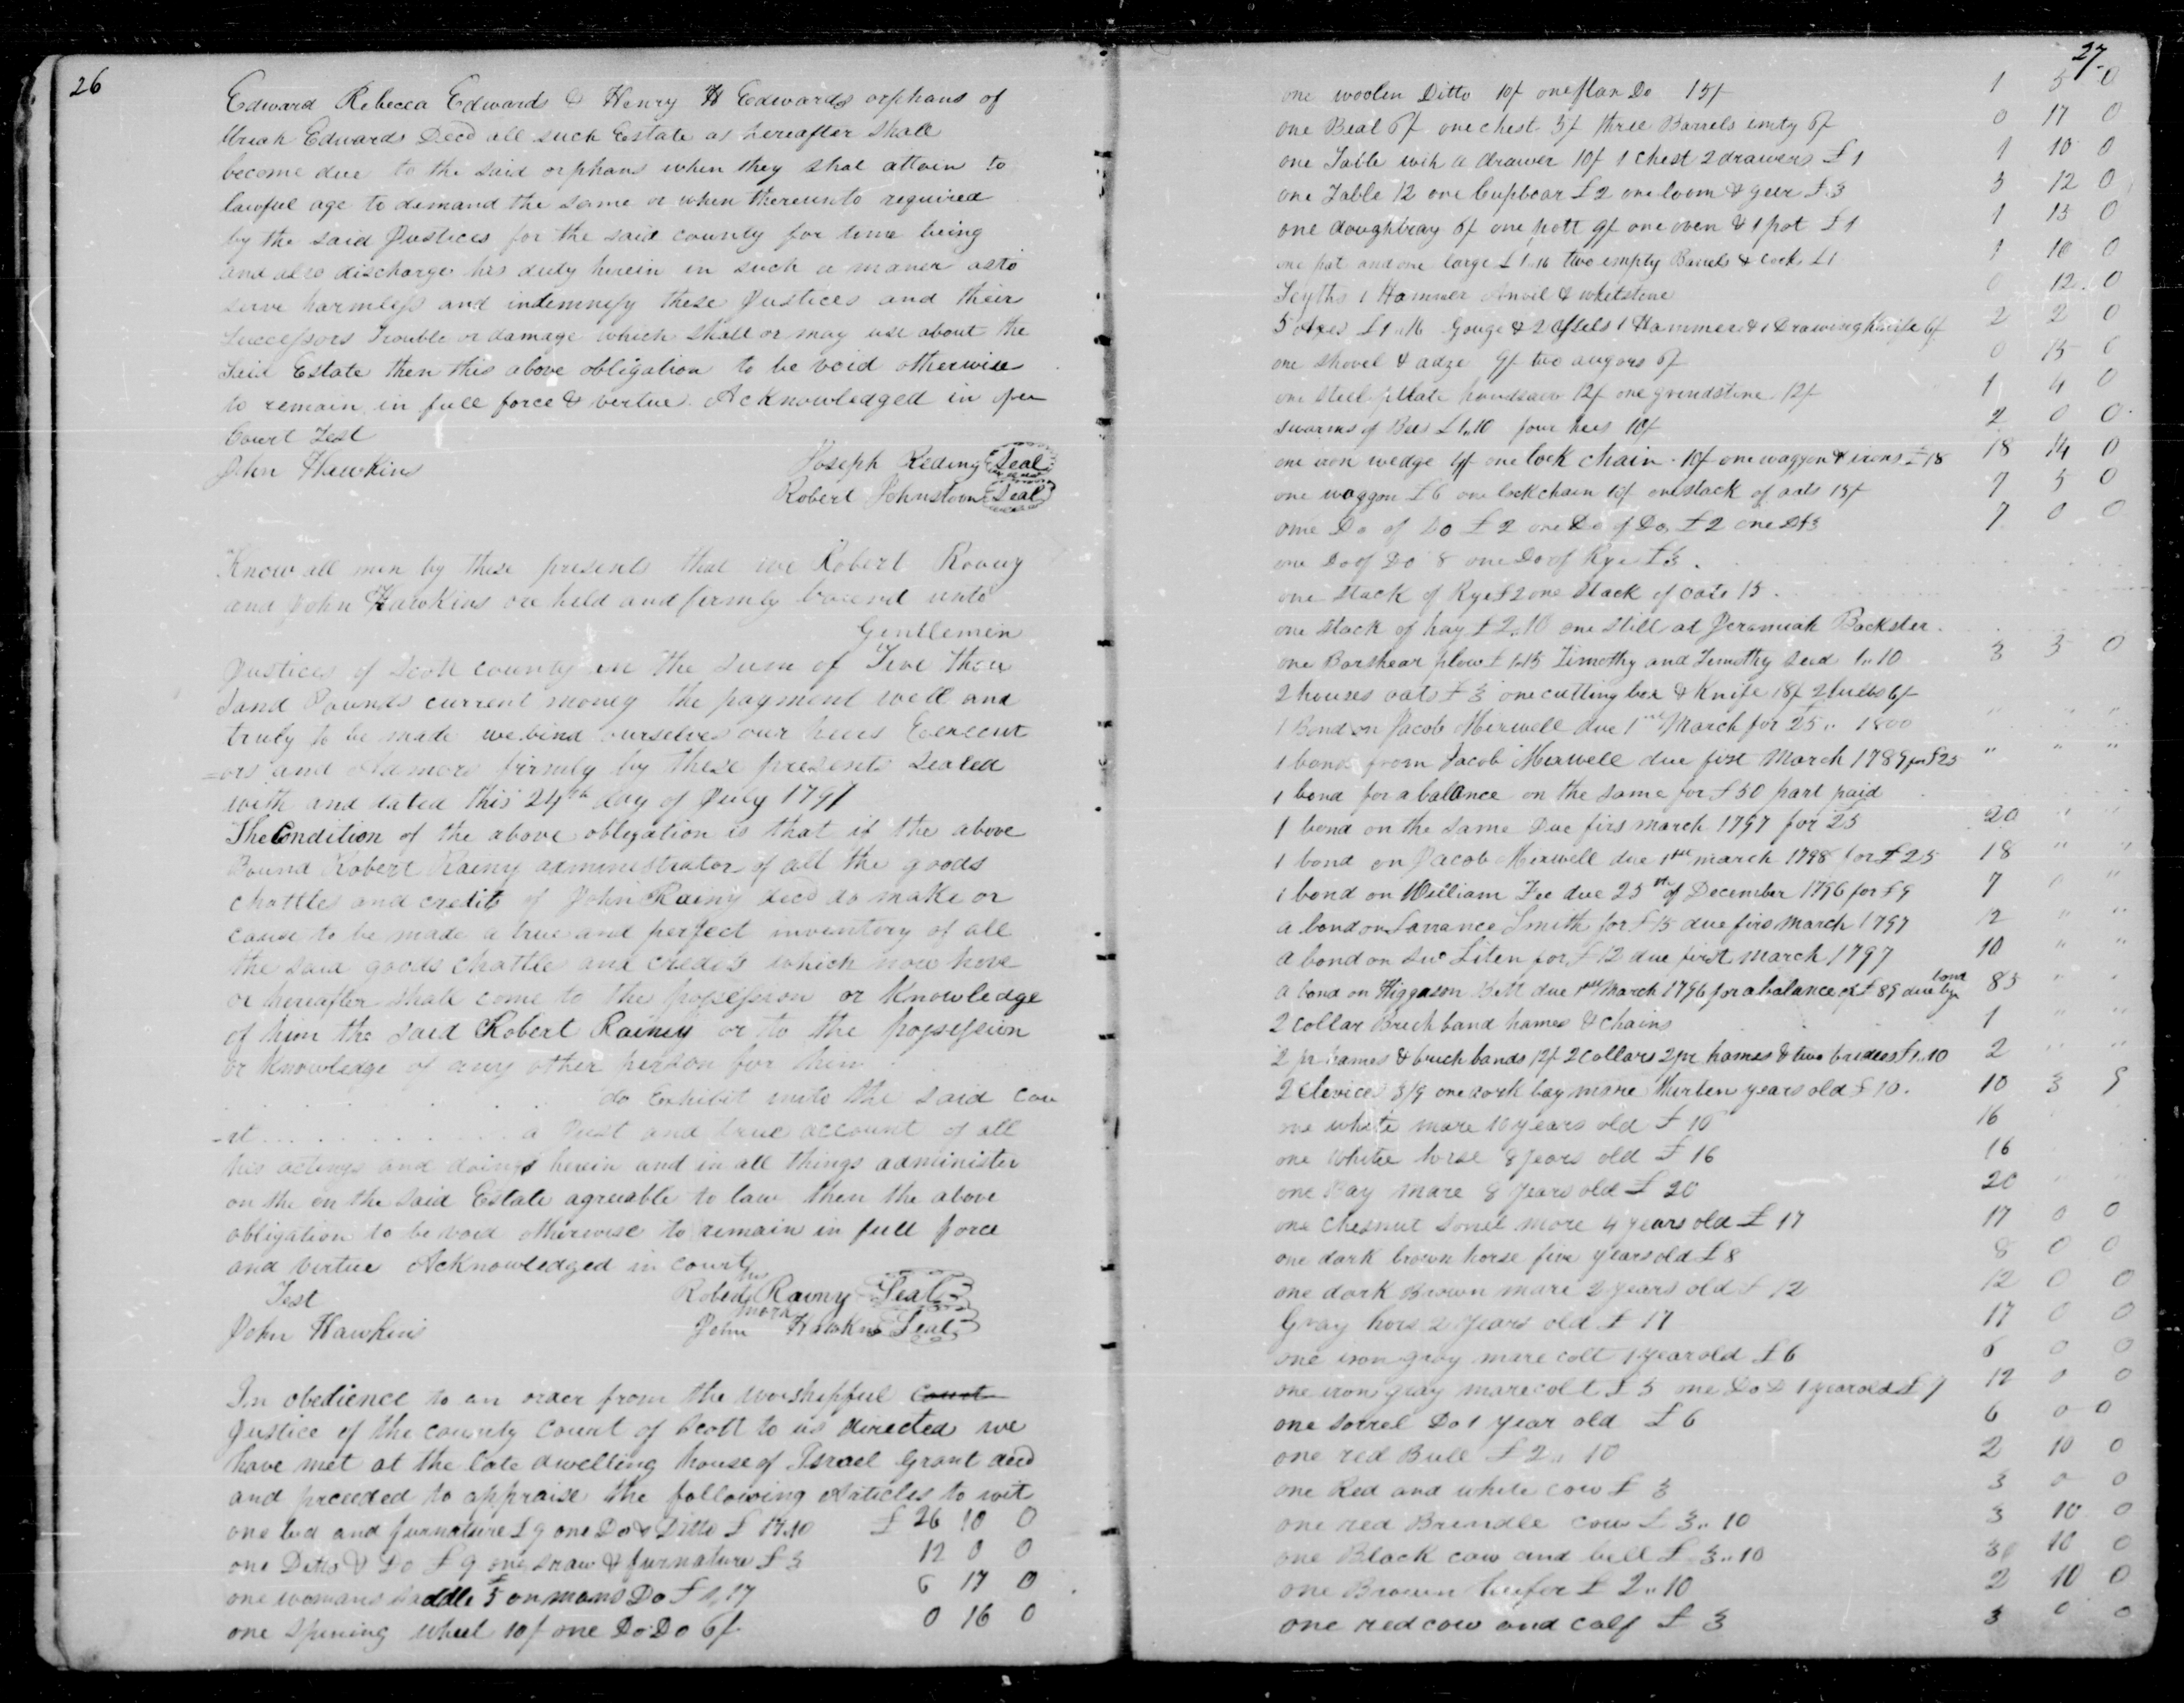 26
Edward Rebecca Edwards & Henry H Edwards orphans of
Uriah Edwards Decd all such Estate as hereafter shall
become due to the said orphans when they shal attain to
lawful age to demand the same or when thereunto required
by the said Justices for the said county for time being
and also discharge his duty herein in such a maner as to
save harmless and indemnify these Justices and their
successors Trouble or damage which shall or may use about the
said Estate then this above obligation to be void otherwise
to remain in full force & vertue Acknowledged in open
Court Test
John Hawkins
Joseph Reding Seal
Robert Johnston Seal
Know all men by these presents that we Robert Rany
and John Hawkins are held and firmly bound unto
Gentlemen
Justices of Scott county in the sum of Five thou
sand Pounds current money the payment well and
truly to be made we bind ourselves our heirs Execut
=ors and Admors firmly by these presents Sealed
with and dated this 24th day of July 1797
The Condition of the above obligation is that if the above
Bound Robert Rainy administrator of all the goods
chattle and credits of John Rainy decd do make or
cause to be made a true and perfect inventory of all
the said goods chattle and credits which now have
or hereafter shall come to the possession or knowledge
of him the said Robert Rainey or to the possession
or knowledge of any other person for him
do Exhibit unto the said Cou
-rt a Just and true account of all
his actings and doings herein and in all things administer
on the on the said Estate agreeable to law then the above
obligation to be void otherwise to remain in full force
and vertue Acknowledged in court
Test
John Hawkins
his
Robert Rainy Seal
mark
John Hawkins Seal
In obedience to an order from the worshipful court
Justice of the county Court of Scott to us directed we
have met at the late dwelling house of Israel Grant decd
and proceeded to appraise the following Articles to wit
one bed and furnature £9 one Do & Ditto £ 17.10 £ 26 10 0
one Ditto & Do £9 one straw & furnature £3 12 0 0
one womans saddle £5 on mans Do £1,17 6 17 0
one spining wheel 10/ one Do Do 6/ 0 16 0
27
one woolen Ditto 10/ one flax Do 15/ 1 5 0
one Beal 6/ one chest 5/ three Barrels emty 6/ 0 17 0
one Table with a drawer 10/ 1 chest 2 drawers £1 1 10 0
one Table 12 one Cupboar £2 one loom & geer £3 5 12 0
one doughtray 6/ one pott 9/ one oven & 1 pot £1 1 15 0
one pot and one large £1.16 two empty Barrels & cask £1 1 16 0
Scythe 1 Hammer Anvil & whetstone 0 12 0
5 Axes £1.16 Gouge & 2 chisels 1 Hammer & 1 Drawing knife 6/ 2 2 0
one shovel & adze 9/ two augors 6/ 0 15 0
one steel plate handsaw 12/ one grindstone 12/ 1 4 0
swarms of Bees £1.10 four hees 10/ 2 0 0
one iron wedge 4/ one lock chain 10/ one waggon & irons £18 18 14 0
one waggon £6 one lockchain 10/ one stack of oats 15/ 7 5 0
one Do of Do £2 one Do of Do £2 one D £3 7 0 0
one Do of Do 8 one Do of Rye £3
one stack of Rye £2 one stack of oats 15
one stack of hay £2.10 one still at Jeremiah Backster
one Barshear plow £1.15 Timothy and Timothy seed 1..10 3 5 0
2 houses oats £3 one cutting box & Knife 18/ 2 6/
1 Bond on Jacob Mexwell due 1st March for 25.. 1800 " " "
1 bond from Jacob Mexwell due first March 1789 for £25 " " "
1 bond for a balance on the same for £50 part paid
1 bond on the same Due firs march 1797 for 25 20 " "
1 bond on Jacob Mexwell due 1st march 1798 for £25 18 " "
1 bond on William Fee due 25th of December 1796 for £9 7 0 "
a bond on Larrance Smith for £15 due firs march 1797 12 " "
a bond on Liten for £12 due first march 1797 10 " "
a bond on Higgason due 1st March 1796 for a balance of £89 due by bond 85 " "
2 collar Brich band hames & chains 1 " "
2 pr hames & brich bands 12/ 2 collars 2 pr hames & two bridles £1.10 2 " "
2 Clevices 3/9 one bay mare thirten years old £10. 10 3 9
one white mare 10 years old £ 16 16
one white horse 8 years old £ 16 16
one Bay mare 8 years old £ 20 20 " "
one chesnut sorrel mare 4 years old £ 17 17 0 0
one dark brown horse five years old £8 8 0 0
one dark Brown mare 2 years old £ 12 12 0 0
Gray hors 2 years old £ 17 17 0 0
one iron gray mare colt 1 year old £6 6 0 0
one iron gray mare colt £5 one Do D 1 year old £7 12 0 0
one sorrel Do 1 year old £6 6 0 0
one red Bull £2.. 10 2 10 0
one Red and white cow £ 3 3 0 0
one red Brindle cow £ 3.. 10 3 10 0
one Black cow and bell £ 3..10 3 10 0
one Brown heifer £ 2..10 2 10 0
one red cow and calf £ 3 3 0 0